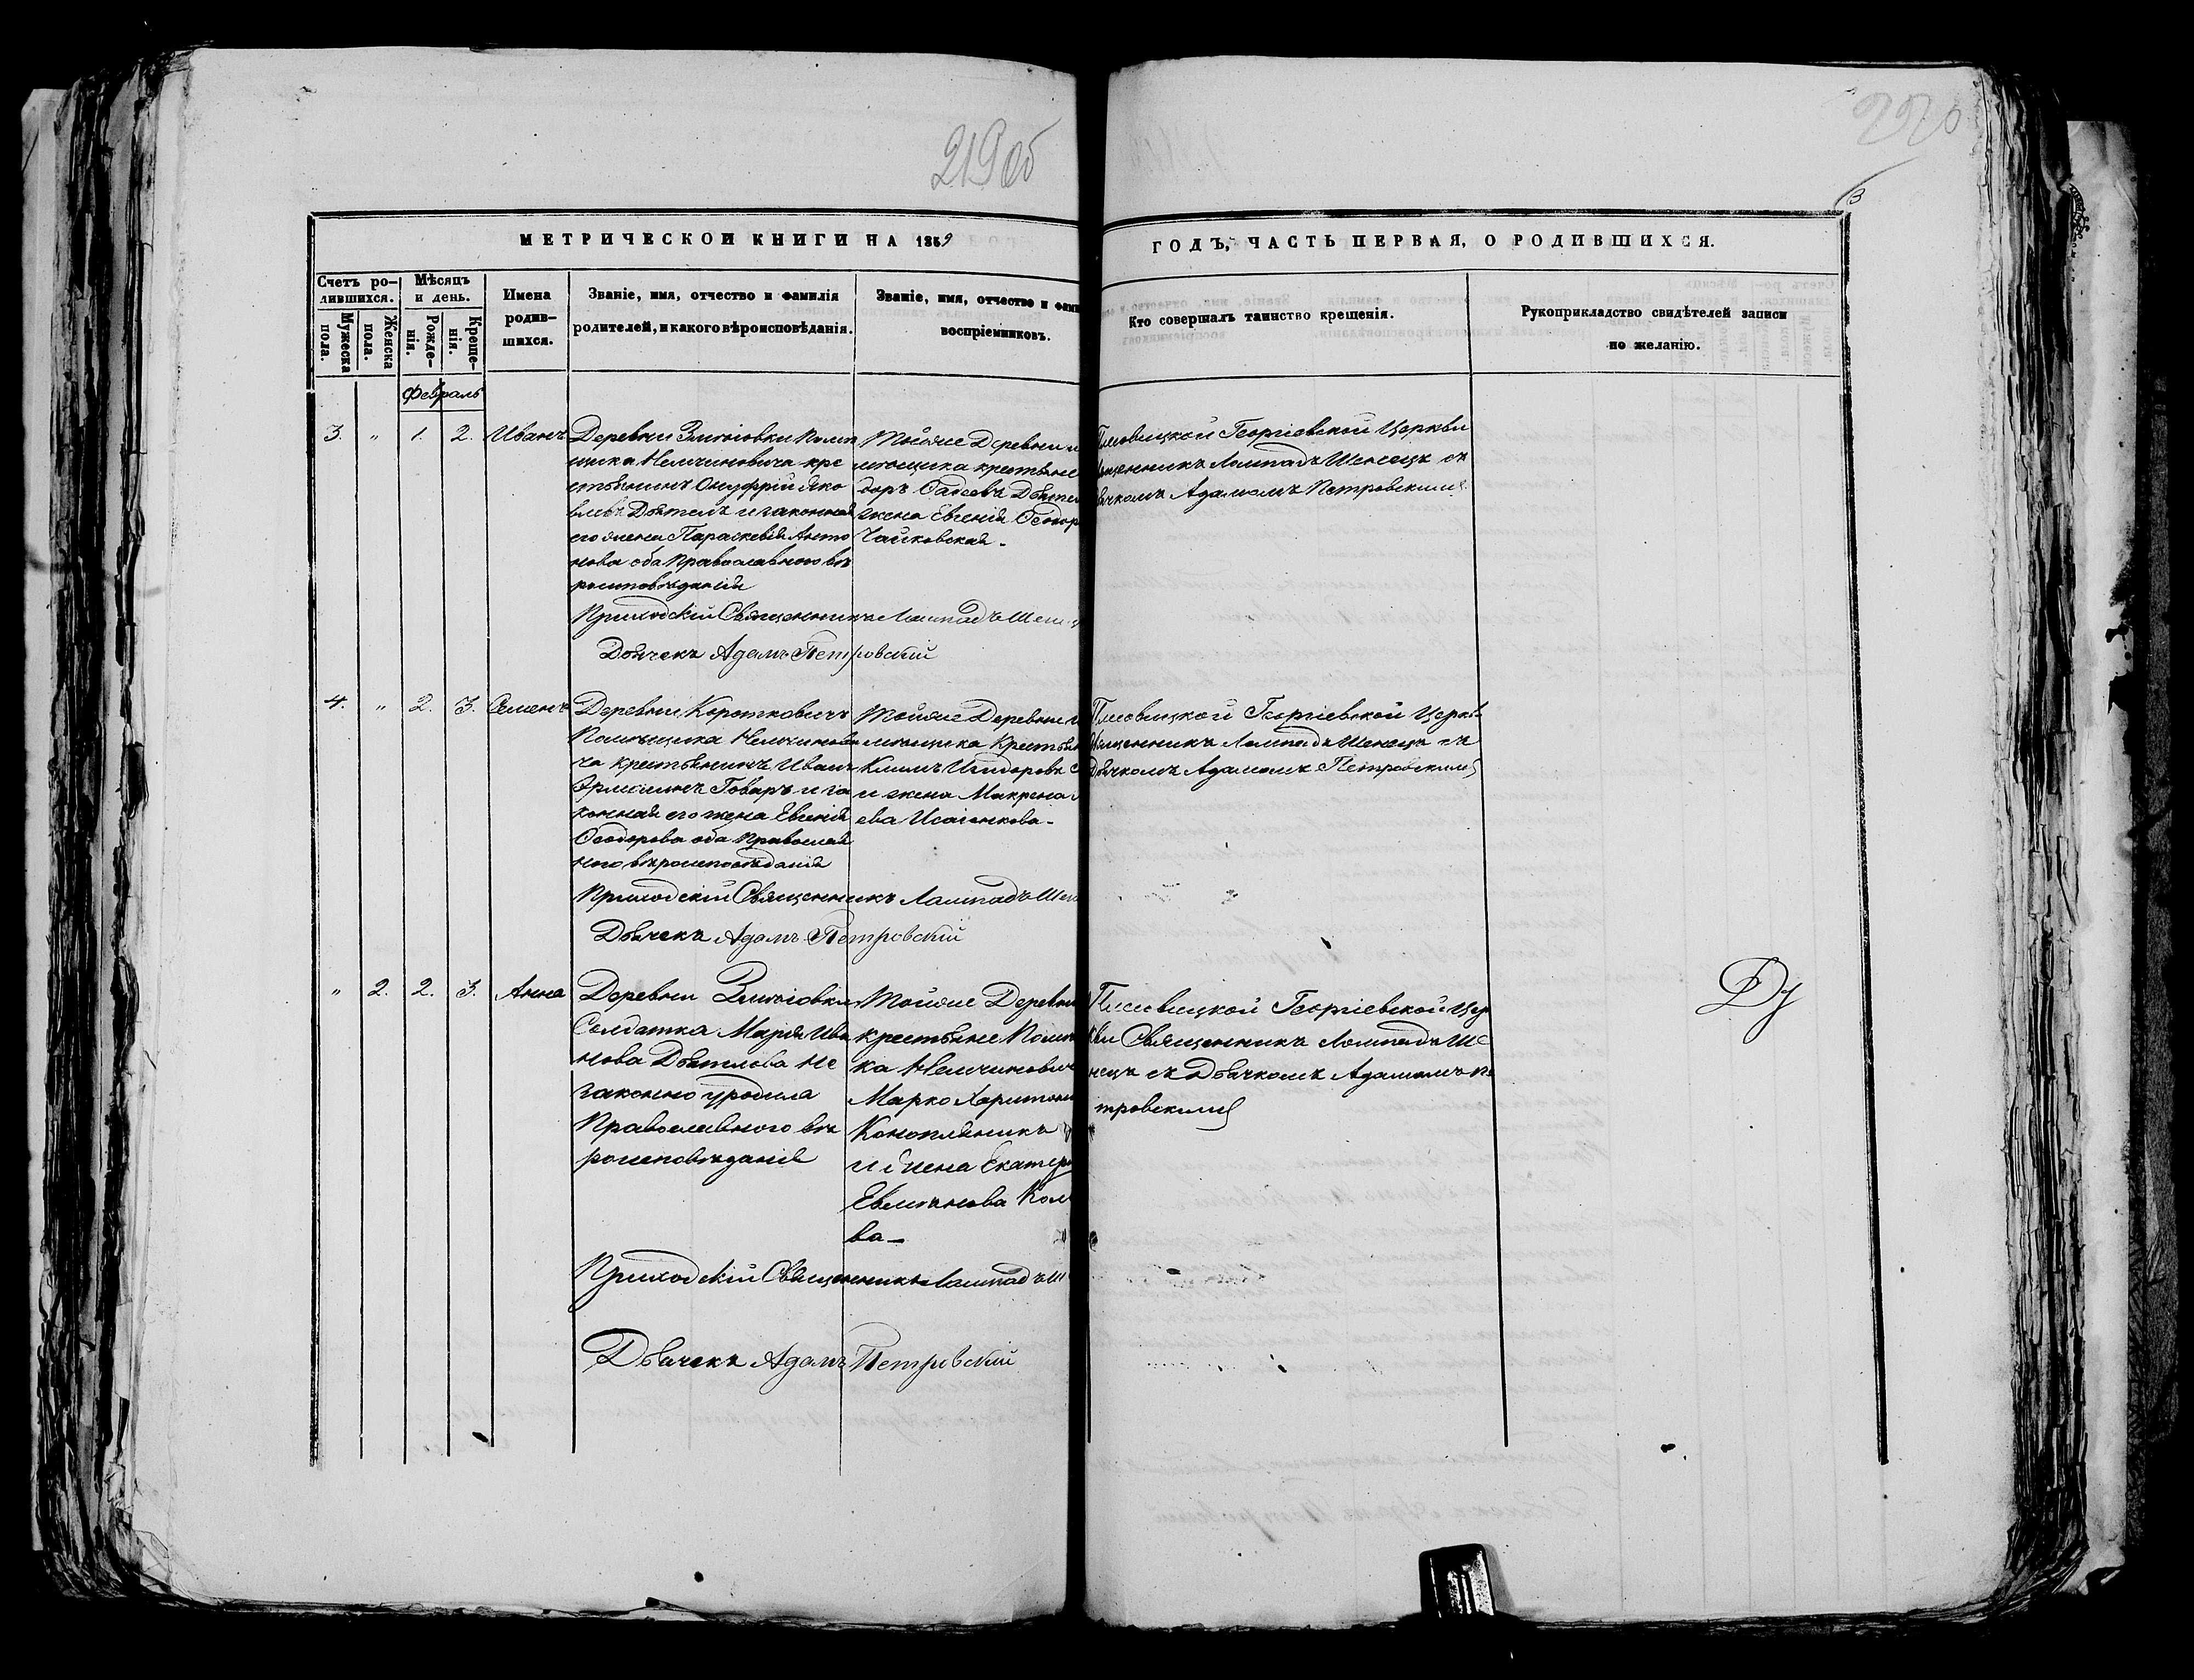 219 об
220
3
МЕТРИЧЕСКОЙ КНИГИ НА 1859
ГОДЪ, ЧАСТЬ ПЕРВАЯ, О РОДИВШИХСЯ.
Счетъ ро-
дившихся.
Мужеска
пола.
Женска
пола.
Мѣсяцъ
и день.
Рожде-
нія.
Креще-
нія.
Имена
родив-
шихся.
Званіе, имя, отчество и фамилія
родителей, и какого вѣроисповѣданія.
Званіе, имя, отчество и фами
воспріемниковъ.
Кто совершалъ таинство крещенія.
Рукоприкладство свидѣтелей записи
по желанію.
Февраль
3. " 1. 2. Иванъ
Деревни
щика Немчиновича кре
стьянинъ Онуфрій Яко
влевъ Дятелъ и законная
его жена Параскевія Анто
нова оба Православного вѣ
роисповѣданія
Тойже Деревни
крестьяне
доръ Фадеевъ Дяте
жена Евгенія Ѳеодор
Чайковская.
Георгіевской Церкви
Лампадъ Шенецъ съ
Адамомъ Петровскимъ
Приходскій Священникъ Лампадъ Шен
Дьячекъ Адамъ Петровскій
4. " 2. 3. Семенъ
Деревни Короткович
Помѣщика Немчинови
ча крестьянинъ Иванъ
Говаръ и за
конная его жена Евгенія
Ѳеодорова оба Православ
ного вѣроисповѣданія
Тойже Деревни
Крестьян
Климъ
и жена Макрена
ева
Георгіевской Церкв
Лампадъ Шенецъ съ
Дьячкомъ Адамомъ Петровскимъ
Приходскій Священникъ Лампадъ Шен
Дьячекъ Адамъ Петровскій
" 2. 2. 3. Анна
Деревни
Солдатка Марія Ива
нова Дятлова не
законно уродила
Православного вѣ
роисповѣданія
Тойже Деревни
крестьяне Помѣщ
ка Немчинович
Марко Харитон
Конопляникъ
и жена Екатери
ва
Георгіевской Цер
кви Священникъ Лампадъ Ше
нецъ съ Дьячкомъ Адамомъ Пе
тровскимъ
Приходскій Священникъ Лампадъ Ш
Дьячекъ Адамъ Петровскій